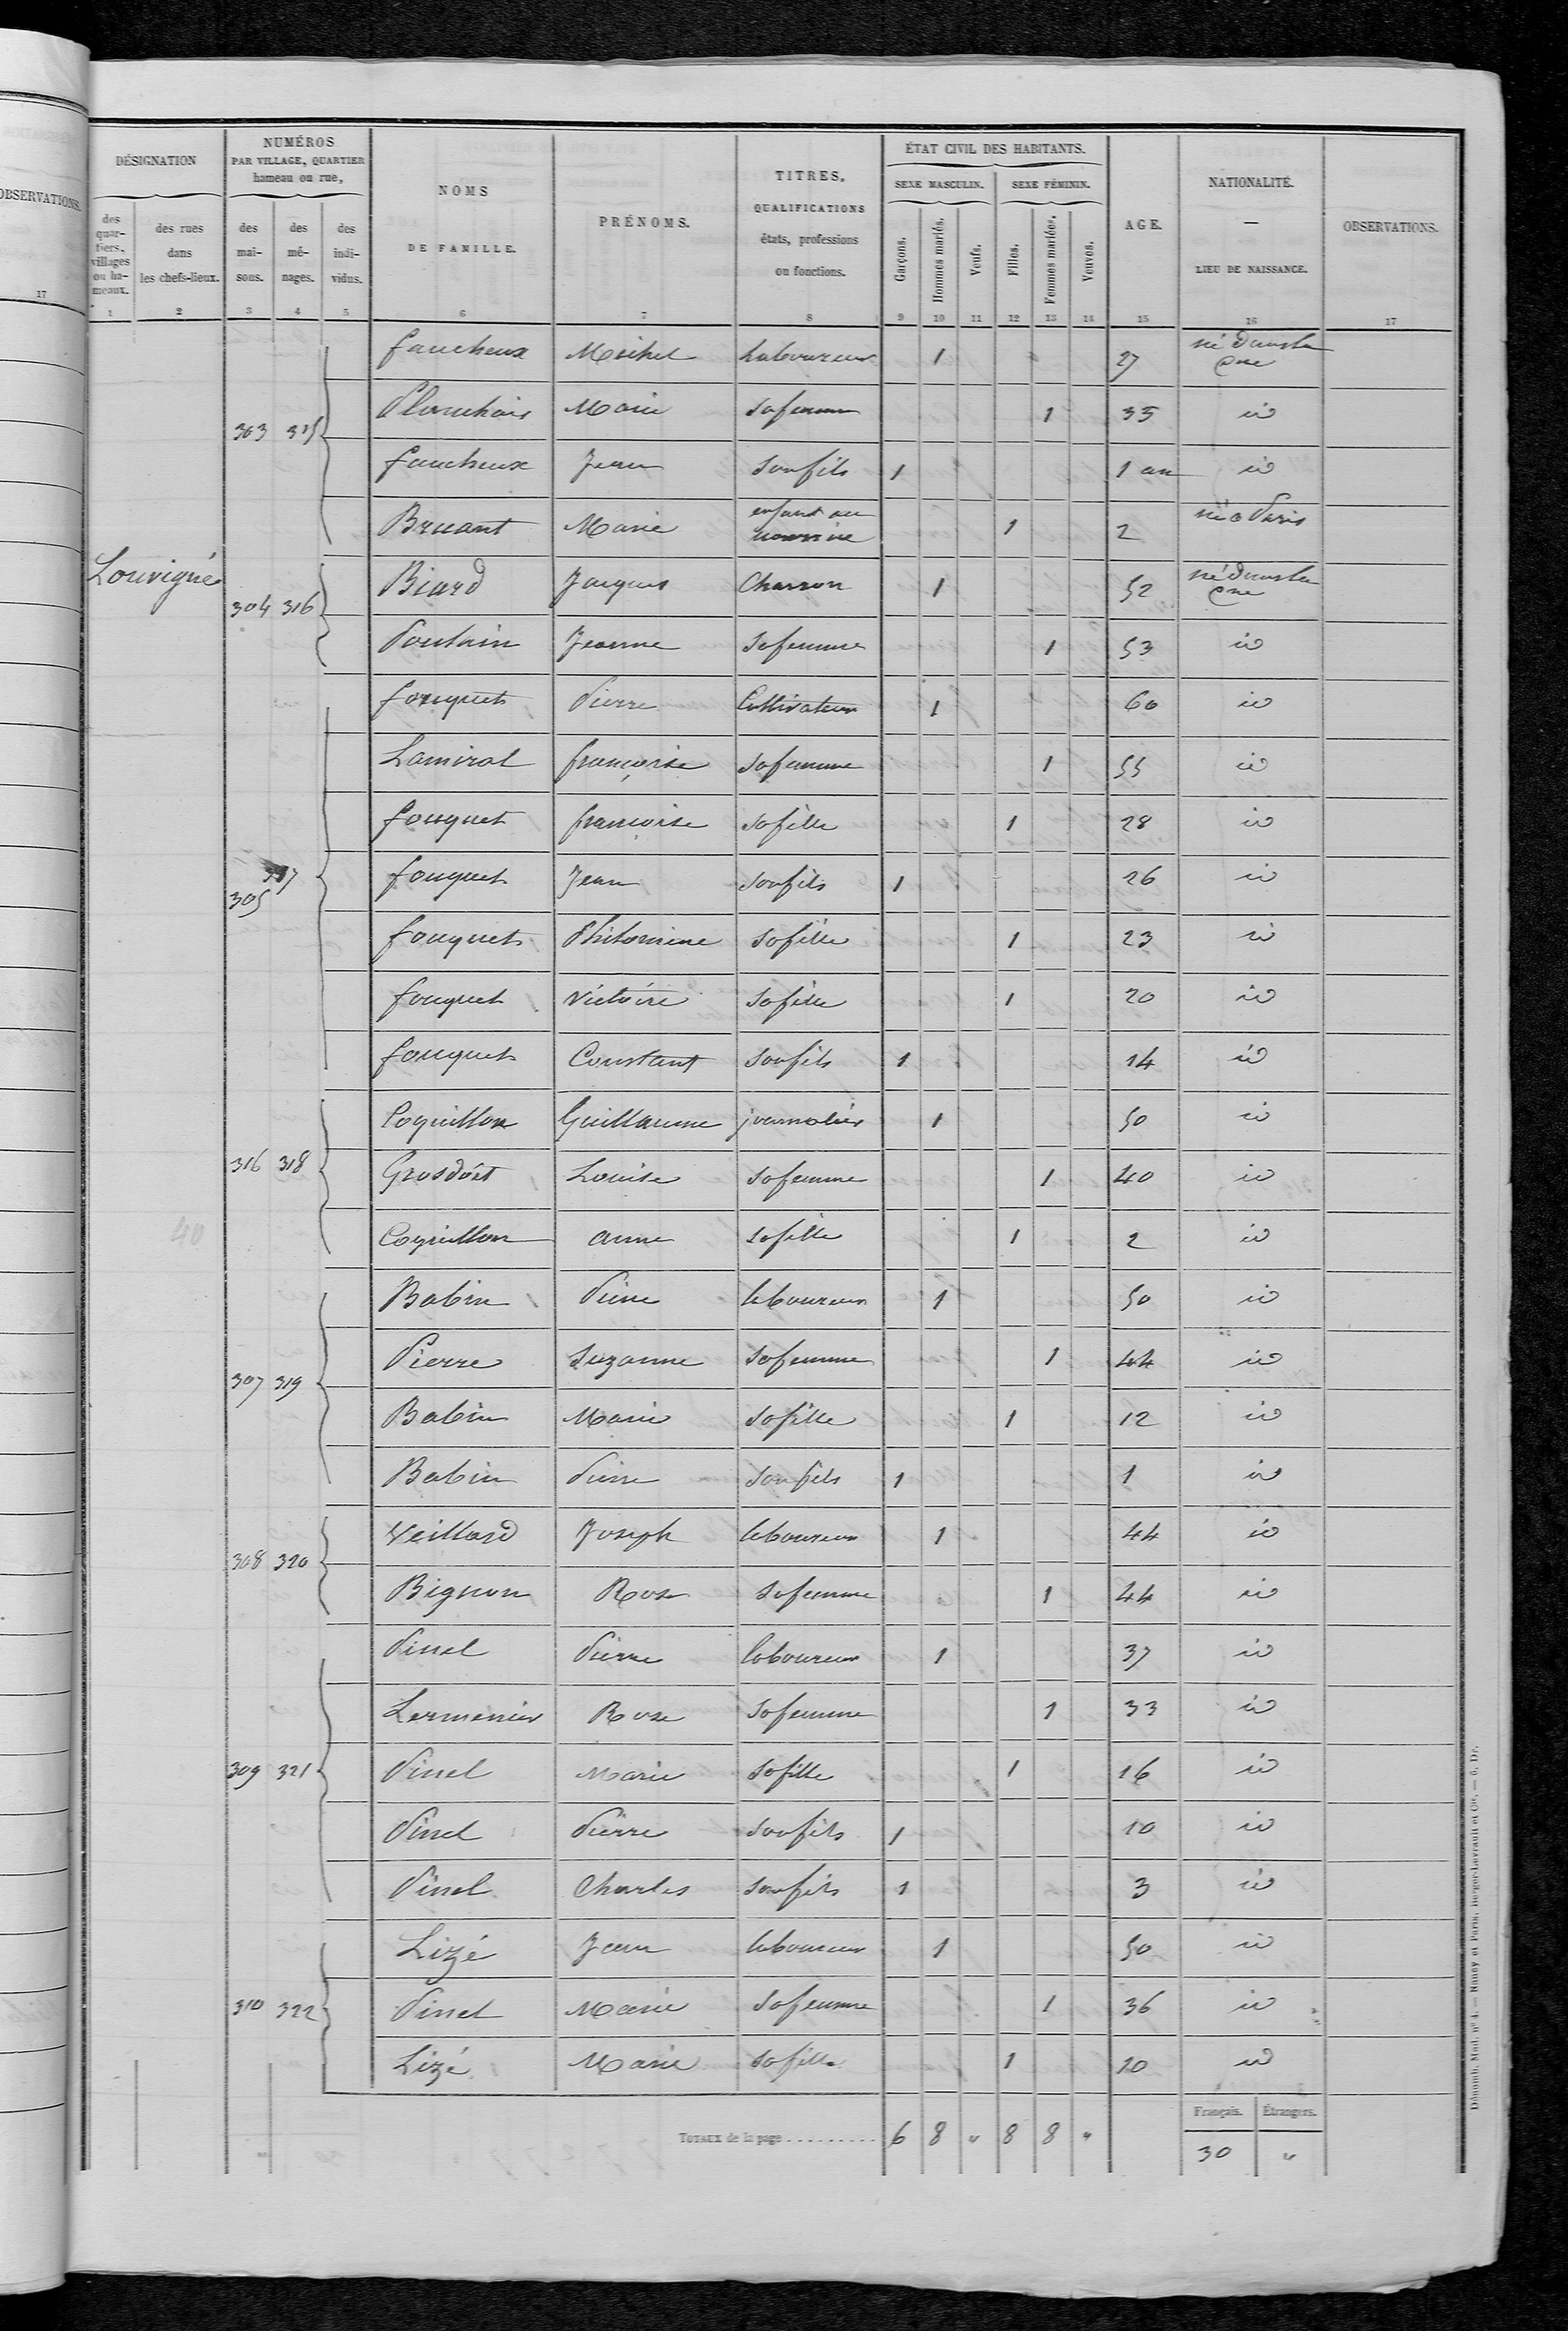 OBSERVATIONS.
17
DÉSIGNATION
NUMÉROS
PAR VILLAGE, QUARTIER
hameau ou rue,
NOMS
DE FAMILLE.
PRÉNOMS.
TITRES,
QUALIFICATIONS
états, professions
ou fonctions.
ÉTAT CIVIL DES HABITANTS.
SEXE MASCULIN. SEXE FÉMININ.
AGE.
NATIONALITÉ.
—
LIEU DE NAISSANCE.
OBSERVATIONS.
des quar-tiers, villages ou ha-meaux.
des rues dans les chefs-lieux.
des mai-sons.
des mé-nages.
des indi-vidus.
Garçons. Hommes mariés. Veufs. Filles. Femmes mariées. Veuves.
1 2 3 4 5 6 7 8 9 10 11 12 13 14 15 16 17
Louvigné
faucheux Michel laboureur 1 27 né dans la cne
303 315 Planchais Marie sa femme 1 35 id
faucheux Jean son fils 1 1 an id
Bruant Marie enfant en nourrice 1 2 né à Paris
304 316 Biard Jacques Charron 1 52 né dans la cne
Poulain Jeanne sa femme 1 53 id
fouquet Pierre Cultivateur 1 60 id
Lamirol françoise sa femme 1 55 id
fouquet françoise sa fille 1 28 id
305 317 fouquet Jean son fils 1 26 id
fouquet Philomène sa fille 1 23 id
fouquet Victoire sa fille 1 20 id
fouquet Constant son fils 1 14 id
Coquillon Guillaume journalier 1 50 id
316 318 Grosdoit Louise sa femme 1 40 id
40
Coquillon anne sa fille 1 2 id
Babin Pierre laboureur 1 50 id
307 319 Pierre Suzanne sa femme 1 44 id
Babin Marie sa fille 1 12 id
Babin Pierre son fils 1 1 id
308 320 Veillard Joseph laboureur 1 44 id
Bignon Rose sa femme 1 44 id
Pinel Pierre laboureur 1 37 id
Lermenier Rose sa femme 1 33 id
309 321 Pinel Marie sa fille 1 16 id
Pinel Pierre son fils 1 10 id
Pinel Charles son fils 1 3 id
Lizé Jean laboureur 1 50 id
310 322 Pinel Marie sa femme 1 36 id
Lizé Marie sa fille 1 10 id
Français. Étrangers.
TOTAUX de la page . . . . . . . . . 6 8 " 8 8 " 30 "